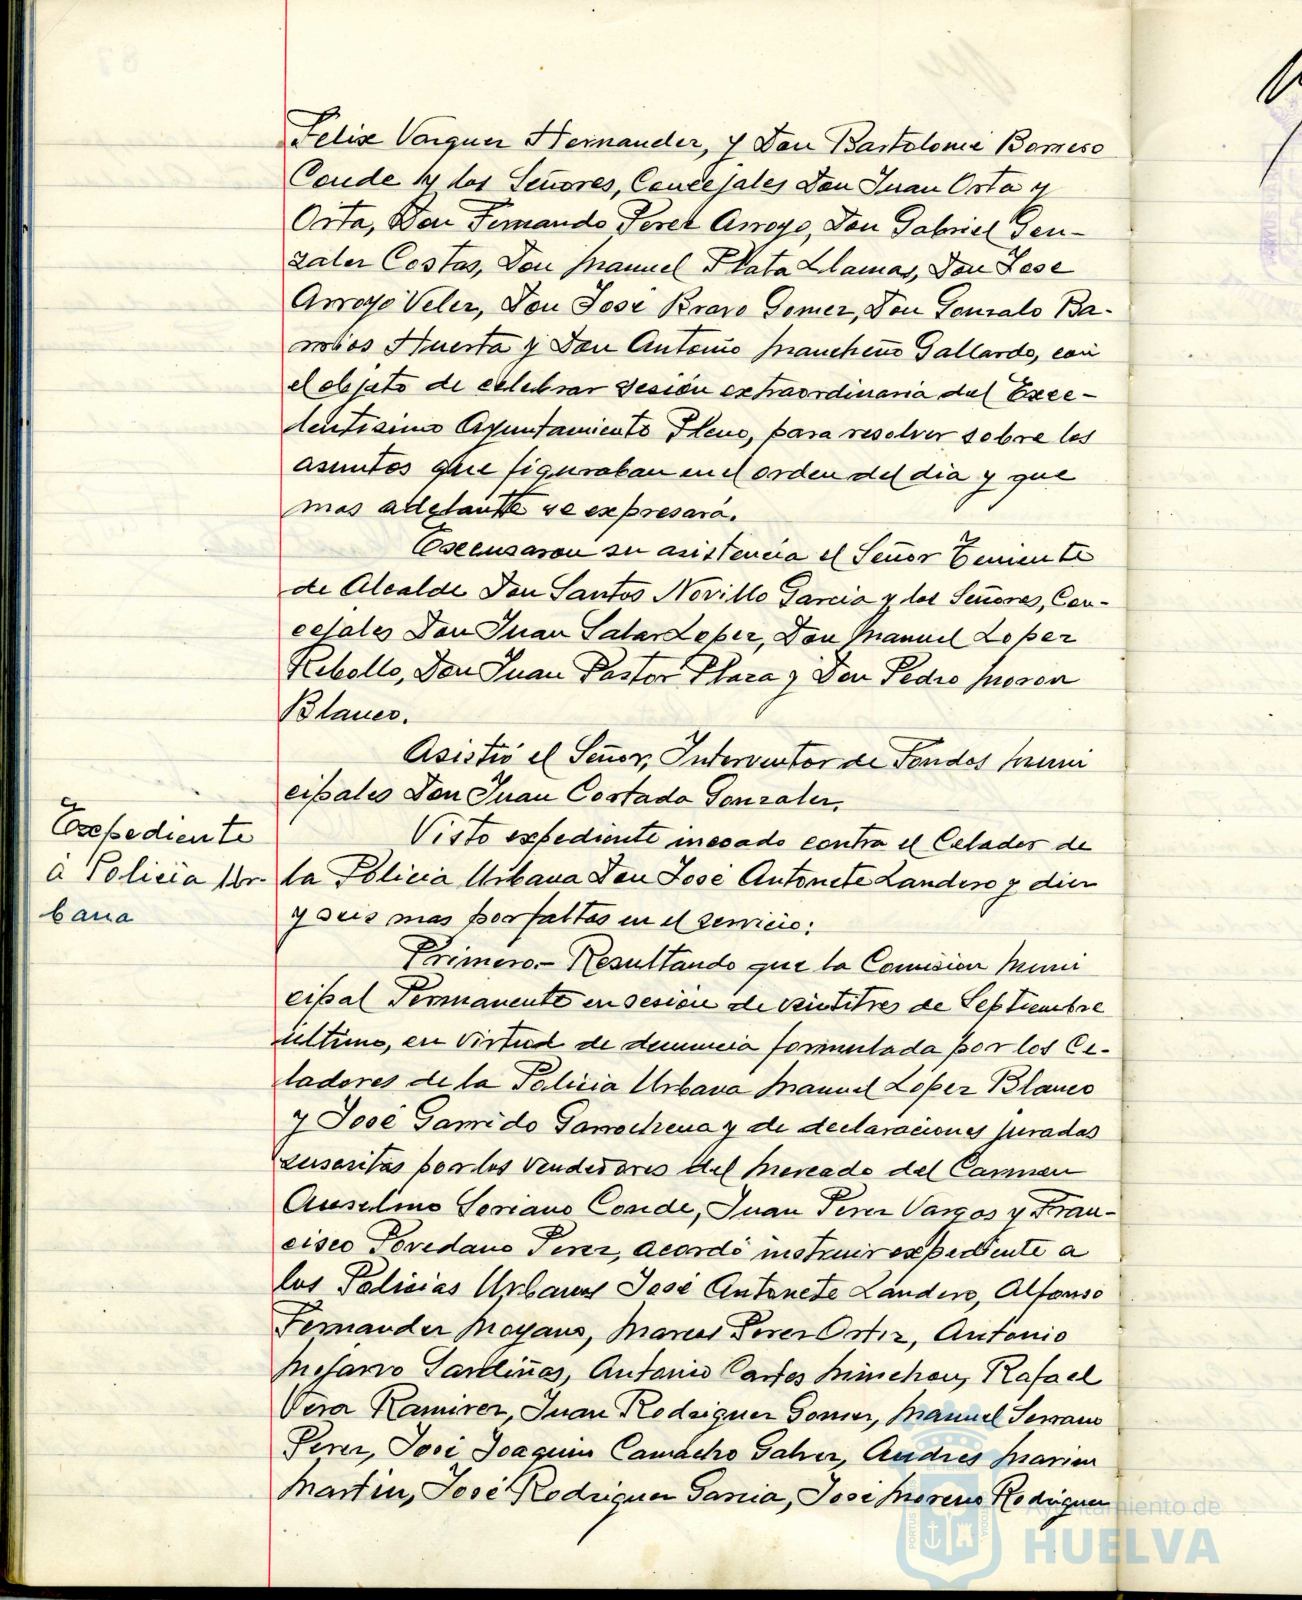 Felix Vazquez Hernandez, y Don Bartolomé Borrero
Conde y los Señores, Concejales Don Juan Orta y
Orta, Don Fernando Perez Arroyo, Don Gabriel Gon-
zalez Costas, Don Manuel Plata Llamas, Don Jose
Arroyo Velez, Don José Bravo Gomez, Don Gonzalo Ba-
rrios Huerta y Don Antonio Mancheño Gallardo, con
el objeto de celebrar sesión extraordinaria del Exce-
lentisimo Ayuntamiento Pleno, para resolver sobre los
asuntos que figuraban en el orden del dia y que
mas adelante se expresará.
Excusaron su asistencia el Señor Teniente
de Alcalde Don Santos Novillo Garcia y los Señores, Con-
cejales Don Juan Salas Lopez, Don Manuel Lopez
Rebollo, Don Juan Pastor Plaza y Don Pedro Moron
Blanco.
Asistió el Señor, Interventor de Fondos Muni
cipales Don Juan Cortada Gonzalez.
Expediente
á Policia Ur-
bana
Visto expediente incoado contra el Celador de
la Policia Urbana Don José Antonete Landero y diez
y seis mas por faltas en el servicio:
Primero.- Resultando que la Comision Muni
cipal Permanente en sesión de veintitres de Septiembre
último, en virtud de denuncia formulada por los Ce-
ladores de la Policia Urbana Manuel López Blanco
y José Garrido Garrochena y de declaraciones juradas
suscritas por los vendedores del Mercado del Carmen
Anselmo Soriano Conde, Juan Perez Vargas y Fran-
cisco Povedano Perez, acordó instruir expediente a
los Policias Urbanos José Antonete Landero, Alfonso
Fernandez Moyano, Marcos Perez Ortiz, Antonio
Mojarro Sardiñas, Antonio Cartes Minchon, Rafael
Vera Ramirez, Juan Rodriguez Gomez, Manuel Serrano
Perez, José Joaquin Camacho Galvez, Andres Marin
Martin, José Rodriguez Garcia, José Moreno Rodriguez
Ayuntamiento de
HUELVA